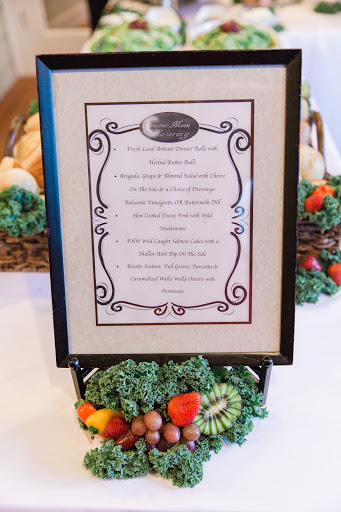 Catering
• Fresh Local Artisan Dinner Rolls with
Herbed Butter Balls
• Arugula, Grape & Almond Salad with Chevre
On The Side & a Choice of Dressings:
Balsamic Vinaigrette OR Buttermilk Dill
• Slow Cooked Tuscan Pork with Wild
Mushrooms
• PNW Wild Caught Salmon Cakes with a
Shallot Aioli Dip On The Side
• Risotto Station: Fall Greens, Pancetta &
Caramelized Walla Walla Onions with
Parmesan